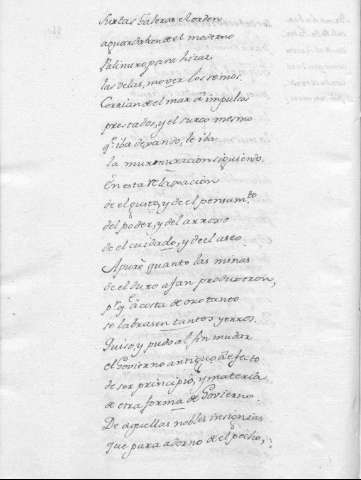 Sextas Galeras el orden
aguardaban de el moderno
Palinuro para hizar
las velas, mover los remos.
Corrian de el mar a impulsos
prestados, y el surco mesmo
q̃ iba dejando, le iba
la murmuracion siguiendo.
En esta
de el gusto, y de el pensam.to
del poder, y del arrojo
de el cuidado, y de el aseo.
Apuré quanto las minas
de el Suro afan produceron,
p.r q̃ a costa de oro tanto
se labrasen tantos yerros.
Quiso, y pudo al fin mudar
el Govierno antiguo, efecto
de ser principio, y materia
de otra forma de Govierno.
De aquellas nobles insignias
que para adorno de el pecho,